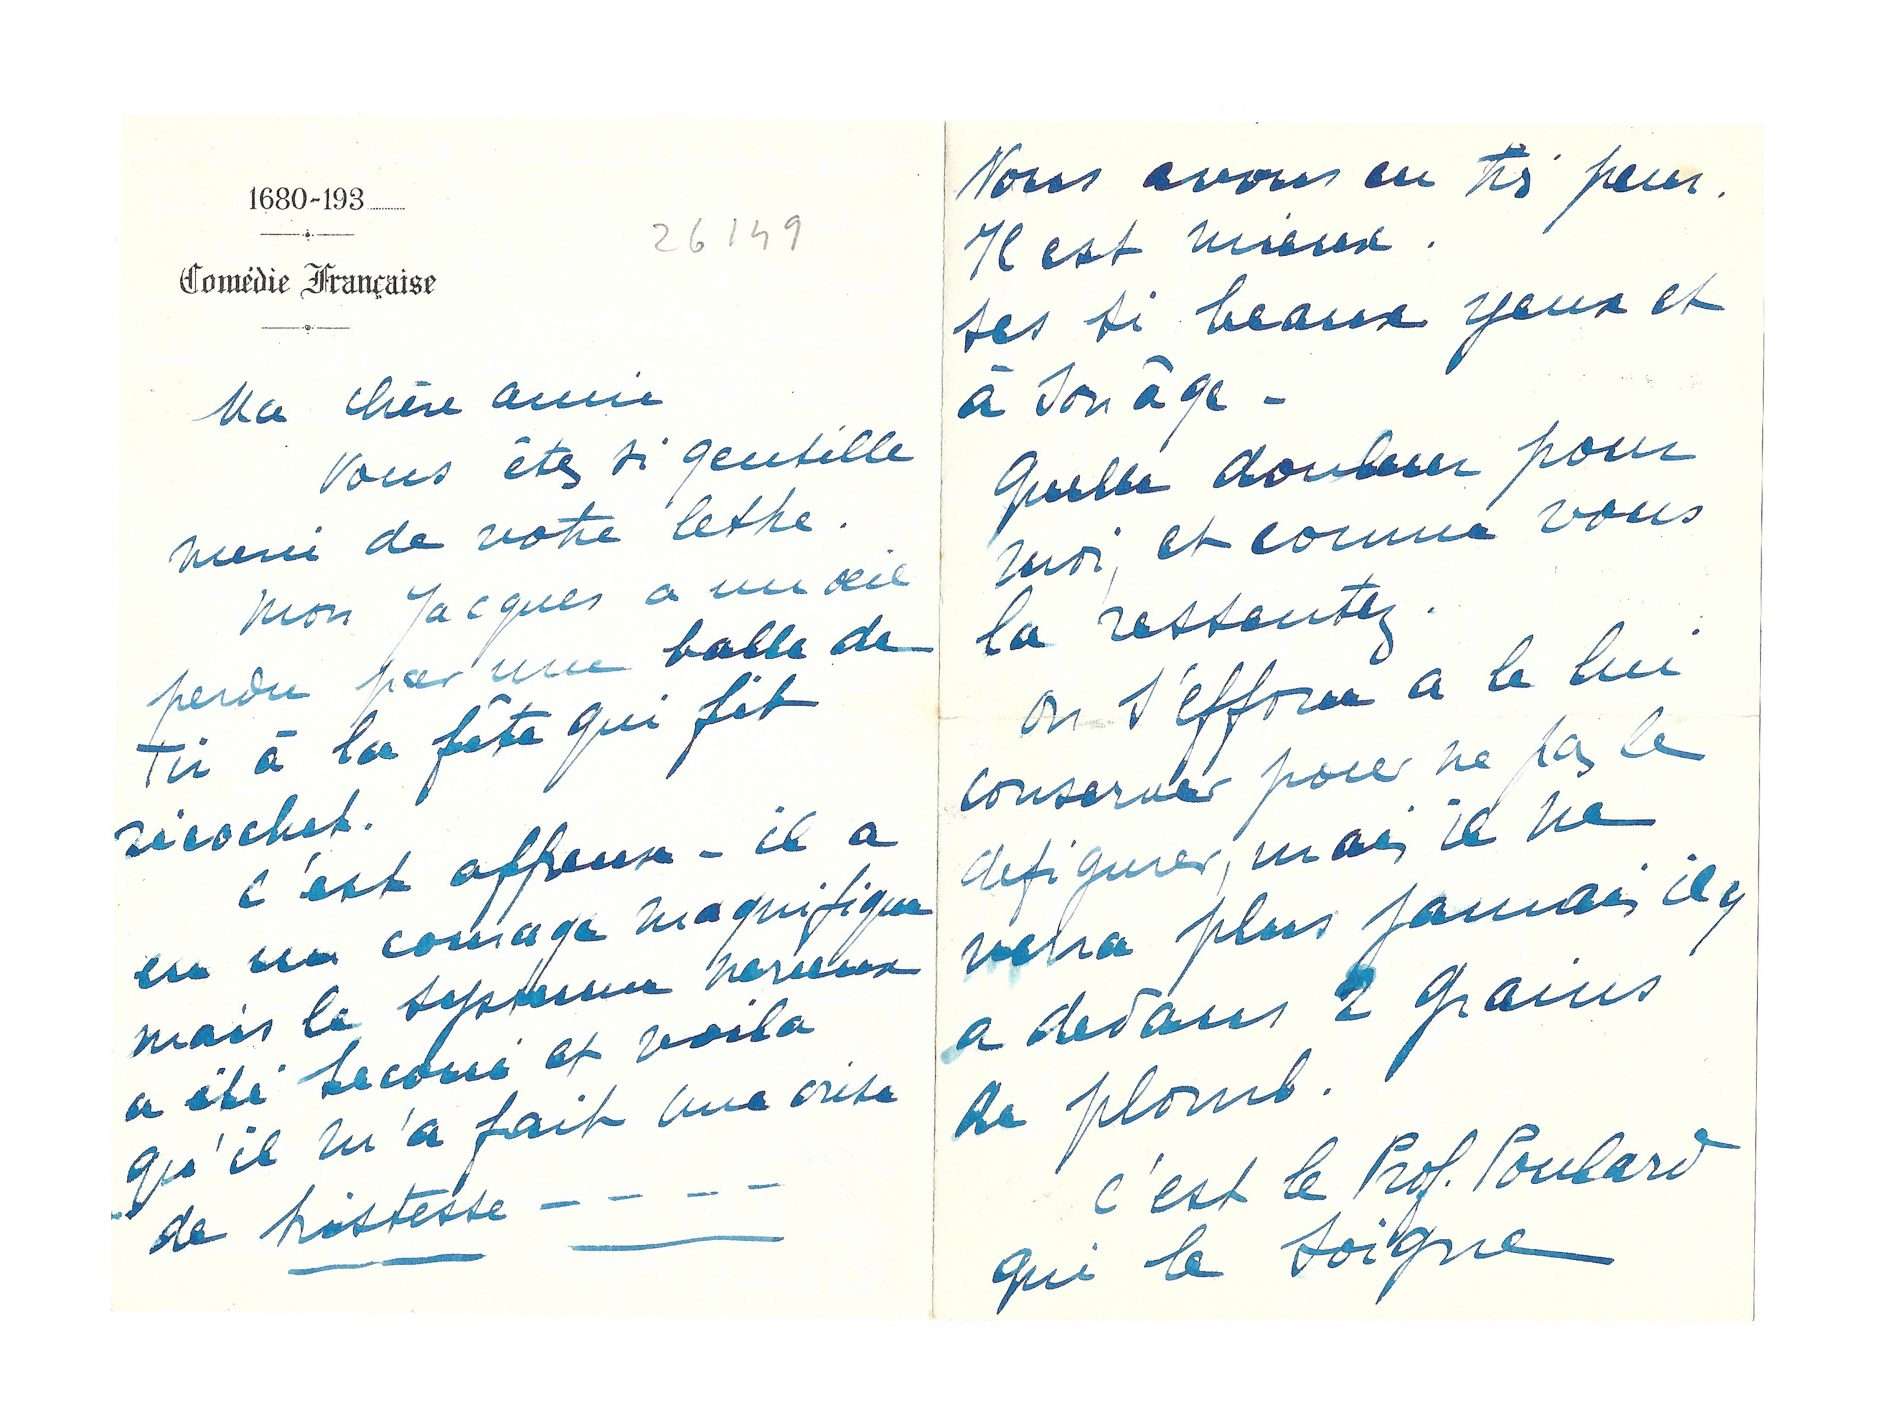 1680-193
Comédie Française
26149
Ma chère amie
Vous êtes si gentille
merci de votre lettre.
Mon Jacques a un œil
perdu par une balle de
Tir à la fête qui fit
ricochet.
C'est affreux - il a
eu un courage magnifique
mais le systeme nerveux
a été secoué et voila
qu'il m'a fait une crise
de tristesse - - - -
Nous avons eu très peur.
Il est mieux.
ses si beaux yeux et
à son âge -
Quelle douleur pour
moi, et comme vous
la ressentez.
on s'efforce a le lui
conserver pour ne pas le
defigurer, mais il ne
verra plus jamais il y
a dedans 2 grains
de plomb.
C'est le Prof. Poulard
qui le soigne